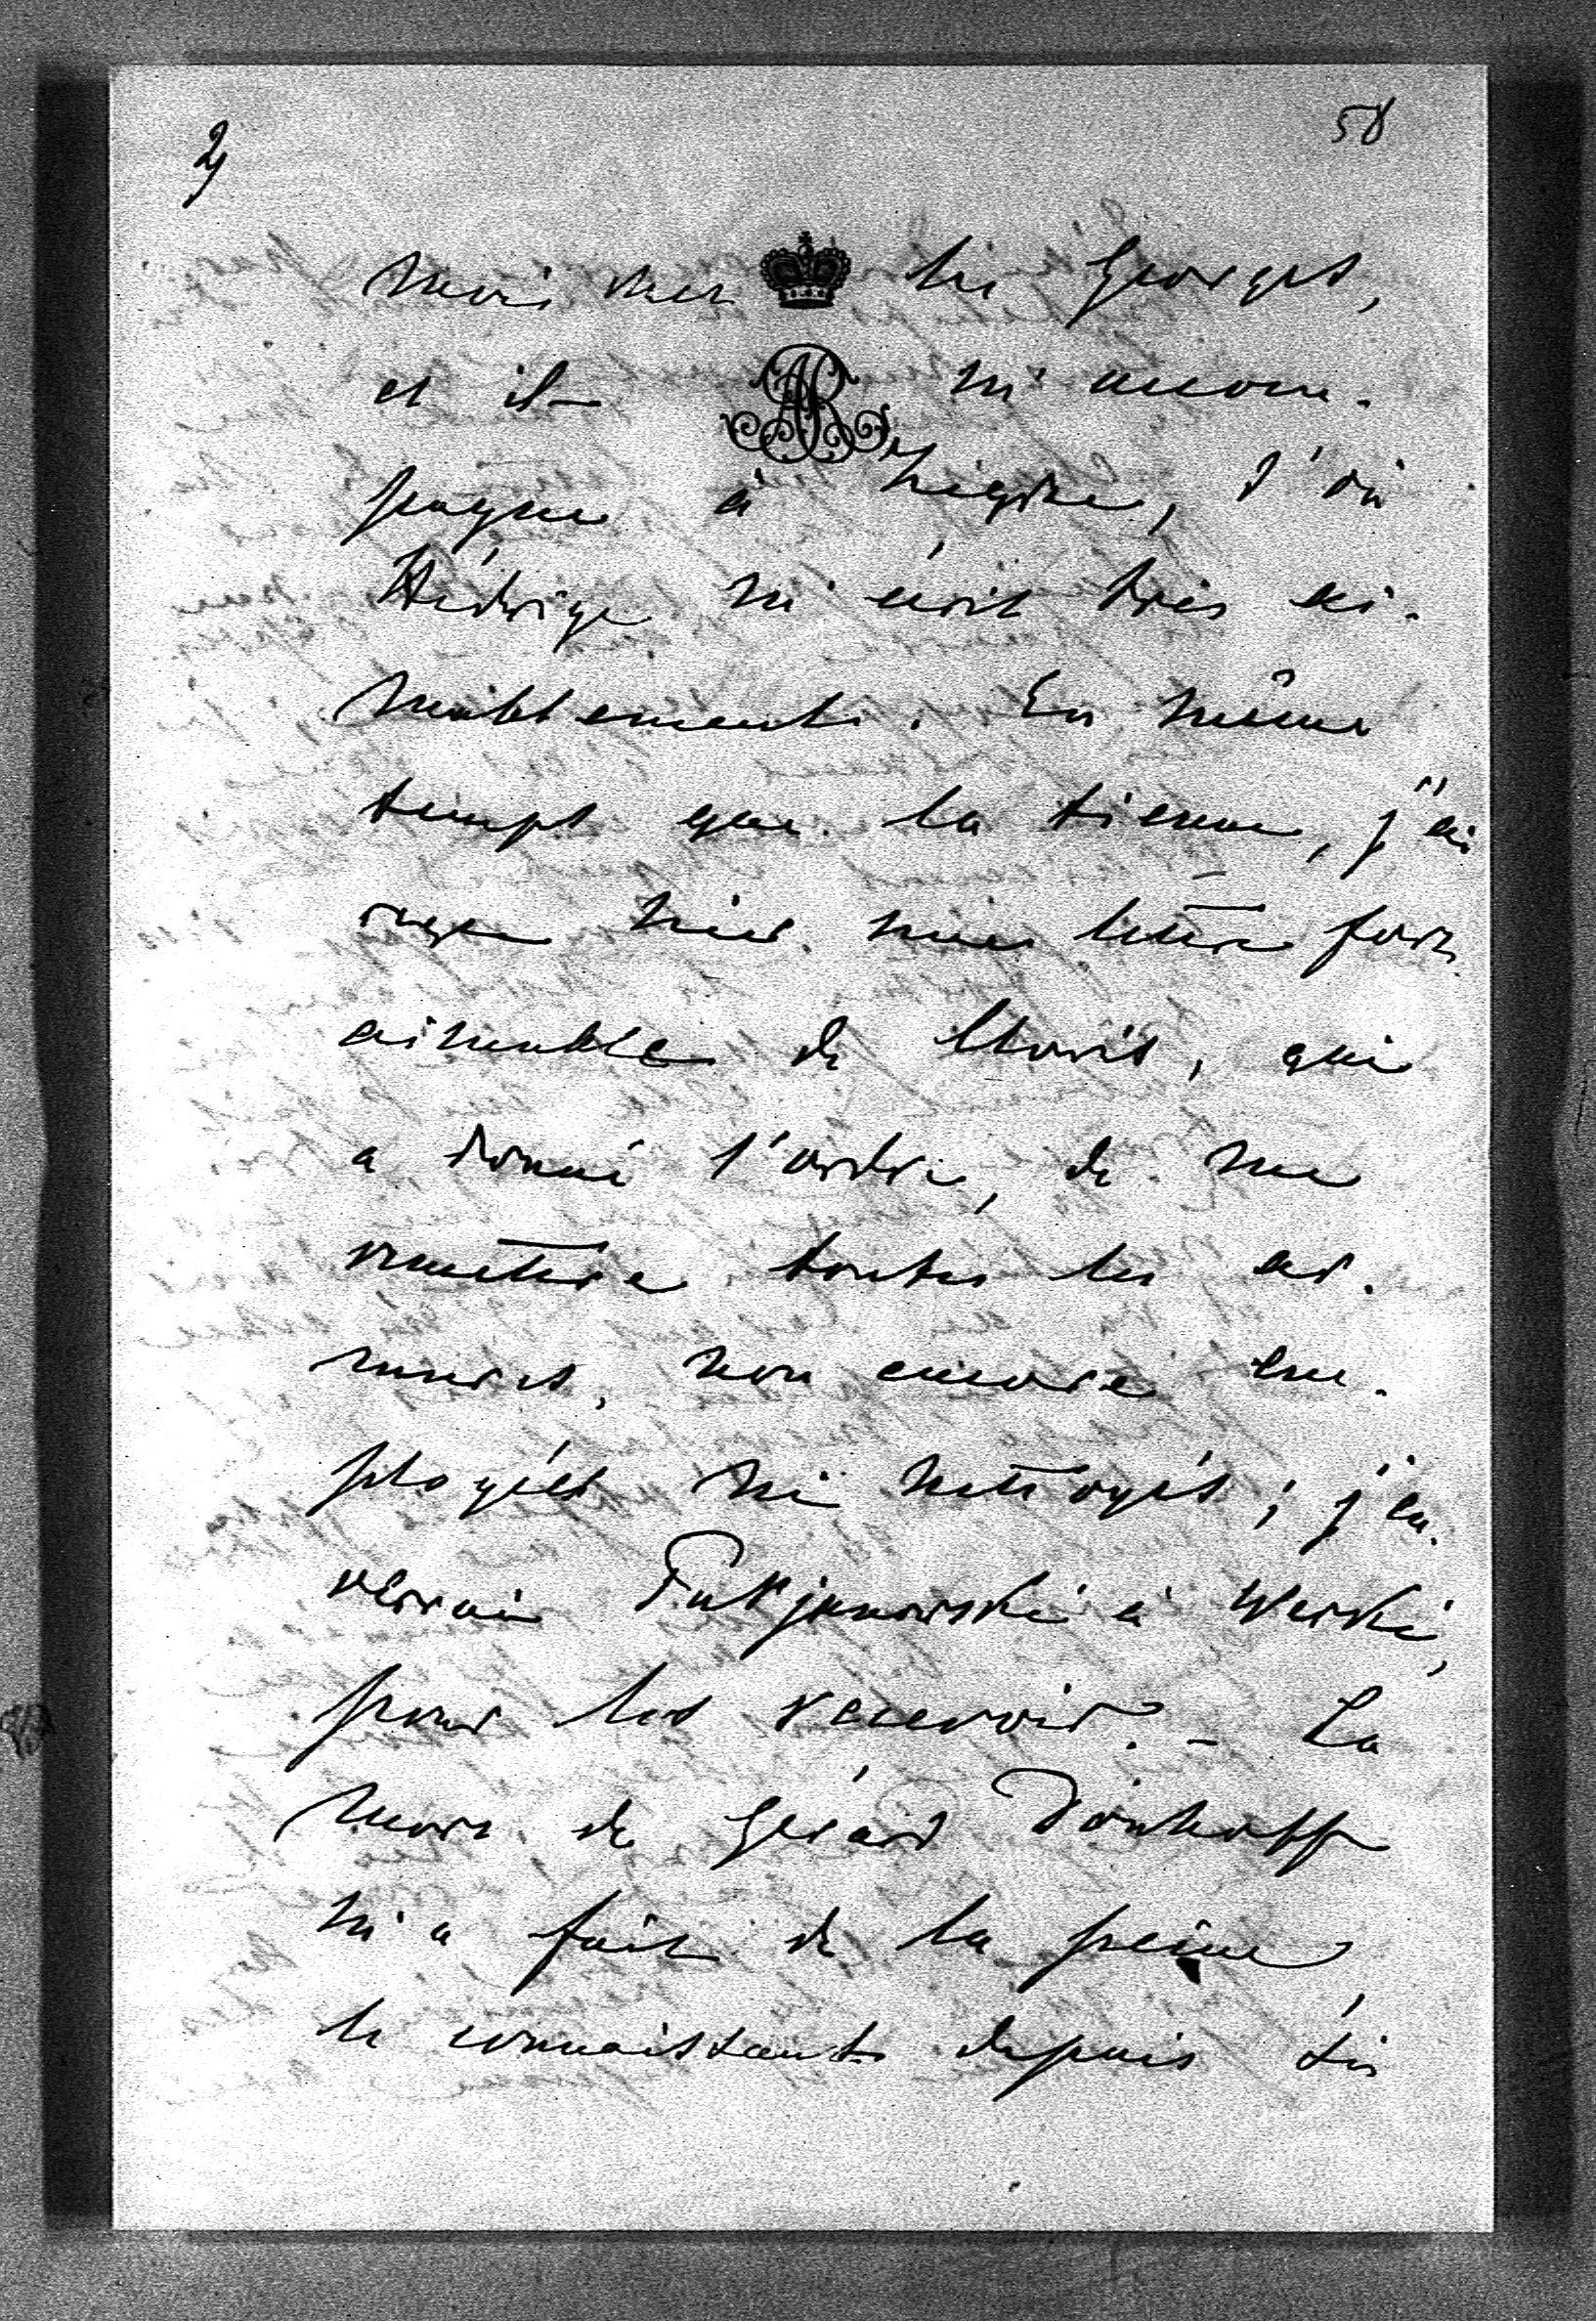 2)
58
moi chez les Georges,
et il m'accom-
pagne à Nieśwież, d'où
Hédwige m'écrit très ai-
mablement. En même
temps que la tienne, j'ai
reçu hier une lettre fort
aimable de Chovis, qui
a donné l'ordre, de me
remettre toutes les ar-
mures, non encore em-
ployées ni nettoyés; j'en-
verrai à Werki,
pour les recevoir. - La
mort de Gérard Dönhoff
m'a fait de la peine,
le connaissant depuis dix